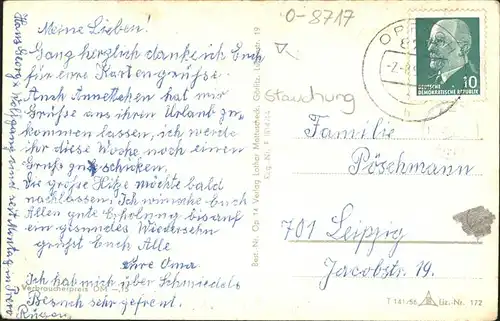 0-8717
Meine Lieben!
Ganz herzlich danke ich Euch
für eure Kartengrüße.
Auch Annettchen hat mir
Grüße aus ihren Urlaub zu-
kommen lassen, ich werde
ihr diese Woche noch einen
Gruß zuschicken.
Die große Hitze möchte bald
nachlassen. Ich wünsche Euch
Allen gute Erholung bis auf
ein gesundes Wiedersehn
grüßt Euch Alle
Eure Oma
Ich hab mich über Schmiedels
Besuch sehr gefreut.
Verbraucherpreis DM
Hans Georg
Rügen
Best. Nr. Op 14 Verlag Lothar Görlitz
Stauchung
DEUTSCHE
DEMOKRATISCHE REPUBLIK
10
Familie
Pöschmann
701 Leipzig
Jacobstr. 19.
T 141/66 Liz.-Nr. 172